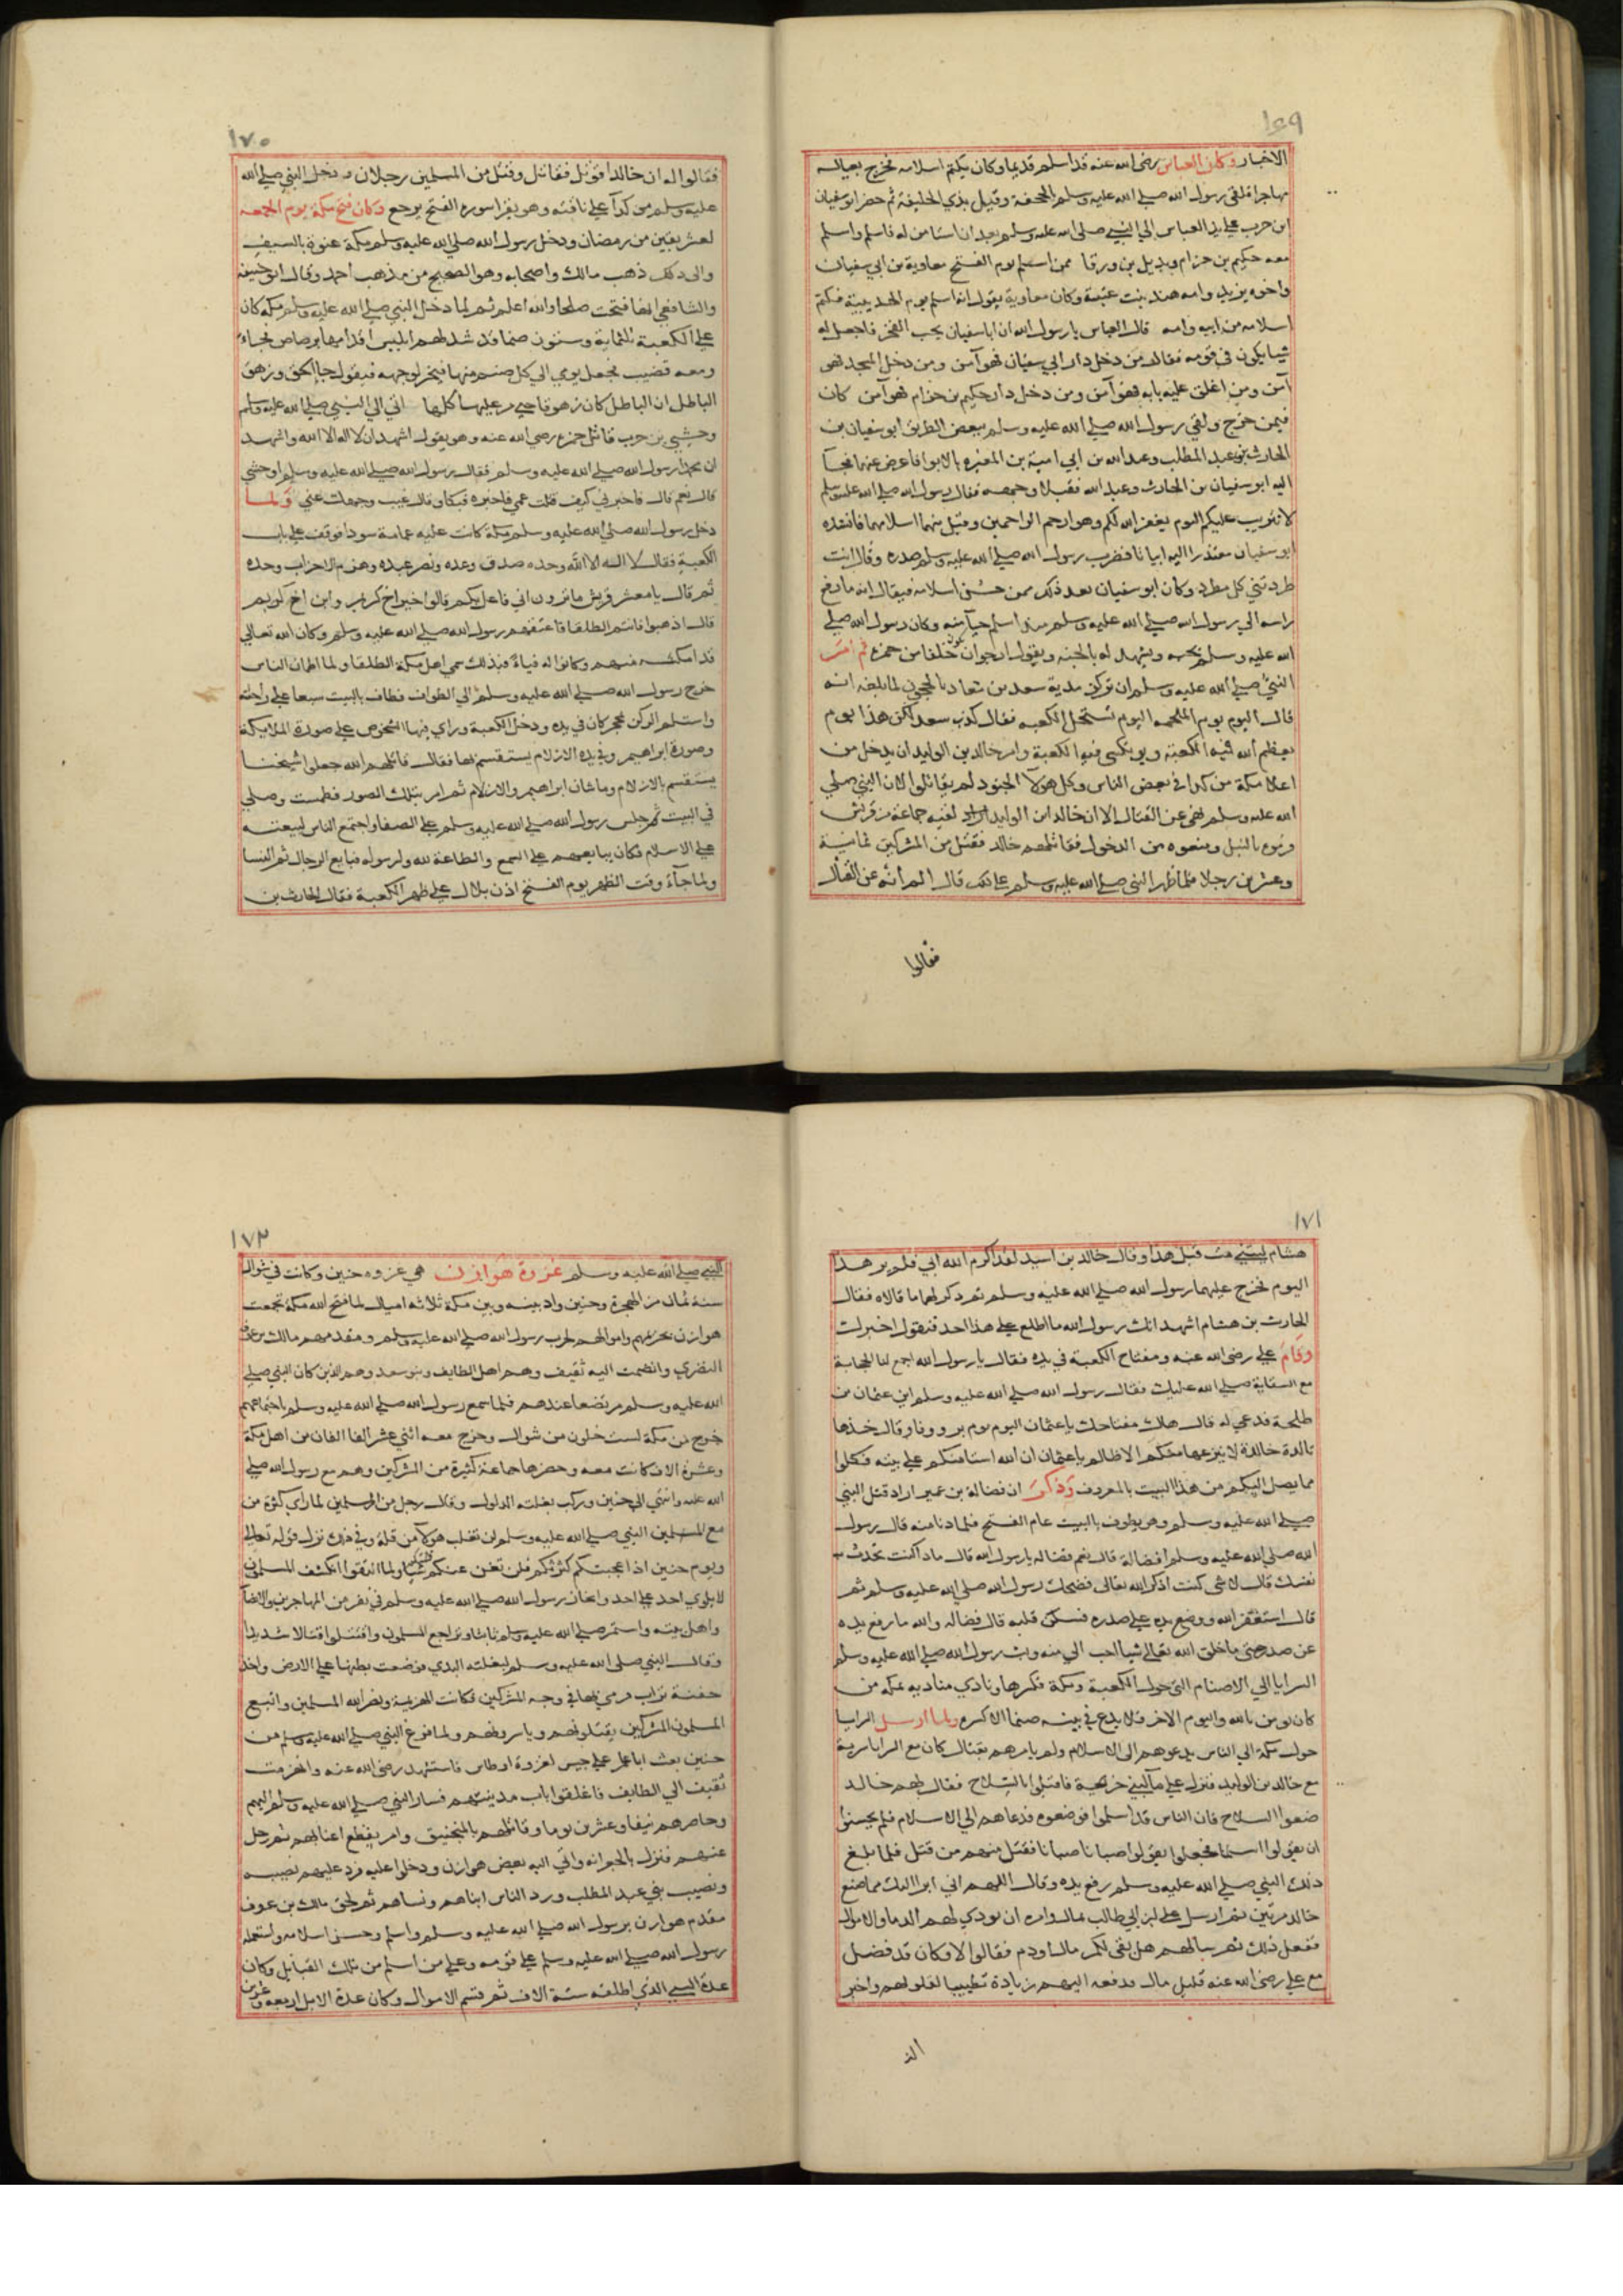 ١٦٩
الاخبار وكان العباس رضى الله عنه قد اسلم قديما وكان يكتم اسلامه فخرج بعياله
مهاجرا فلقى رسول الله صلى الله عليه وسلم بالجحفة وقيل بذي الحليفة ثم حضر ابو سفيان
ابن حرب على يد العباس الى النبي صلى الله عليه وسلم بعد ان استامن له فاسلم واسلم
معه حكيم بن حزام وبديل بن ورقا ممن اسلم يوم الفتح معاوية بن ابي سفيان
واخوه يزيد وامه هند بنت عتبة وكان معاوية يقول انه اسلم يوم الحديبية فكتم
اسلامه من ابيه وامه قال العباس يارسول الله ان ابا سفيان يحب الفخر فاجعل له
شيا يكون في قومه فقال من دخل دار ابي سفيان فهو آمن ومن دخل المسجد فهو
آمن ومن اغلق عليه بابه فهو آمن ومن دخل دار حكيم بن حزام فهو آمن كان
فيمن خرج ولقي رسول الله صلى الله عليه وسلم ببعض الطريق ابو سفيان بن
الحارث بن عبد المطلب وعبد الله بن ابي امية بن المغيره بالابوا فاعرض عنهما فجآ
اليه ابو سفيان بن الحارث وعبد الله فقبلا وجهه فقال رسول الله صلى الله عليه وسلم
لا تثريب عليكم اليوم يغفر الله لكم وهو ارحم الراحمين وقبل منهما اسلامهما فانشده
ابو سفيان معتذرا اليه ابياتا فضرب رسول الله صلى الله عليه وسلم صدره وقال انت
طردتني كل مطرد وكان ابو سفيان بعد ذلك ممن حسن اسلامه فيقال انه ما رفع
راسه الي رسول الله صلى الله عليه وسلم منذ اسلم حيآ منه وكان رسول الله صلى
الله عليه وسلم يحبه ويشهد له بالجنة ويقول ارجوان تكون خلفا من حمزه ثم امر
النبي صلى الله عليه وسلم ان تركز راية سعد بن عبادة بالحجون لما بلغه انه
قال اليوم يوم الملحمه اليوم تستحل الكعبه فقال كذب سعد لكن هذا يوم
يعظم الله فيه الكعبة ويوم تكسى فيه الكعبة وامر خالد بن الوليد ان يدخل من
اعلا مكة من كدا في بعض الناس وكل هولآ الجنود لم يقاتلوا لان النبي صلي
الله عليه وسلم نهى عن القتال الا ان خالد ابن الوليد لقيه جماعة من قريش
فرموه بالنبل ومنعوه من الدخول فقاتلهم خالد فقتل من المشركين ثمانية
وعشرين رجلا فلما ظهر النبي صلى الله عليه وسلم على ذلك قال الم انه عن القتال
فقالوا
١٧٠
فقالوا له ان خالدا قوتل فقاتل وقتل من المسلمين رجلان ودخل النبي صلى الله
عليه وسلم من كدآ على ناقته وهو يقرا سورة الفتح يرجع وكان فتح مكة يوم الجمعه
لعشر بقين من رمضان ودخل رسول الله صلى الله عليه وسلم مكة عنوة بالسيف
والى ذلك ذهب مالك واصحابه وهو الصحيح من مذهب احمد وقال ابو حنيفه
والشافعي انها فتحت صلحا والله اعلم ثم لما دخل النبي صلى الله عليه وسلم مكه كان
على الكعبة ثلثماية وستون صنما قد شد لهم ابليس اقدامها برصاص فجاء
ومعه قضيب فجعل يومي الى كل صنم منها فيخر لوجهه فيقول جا الحق وزهق
الباطل ان الباطل كان زهوقا حتى مر عليها كلها اتي الى النبي صلى الله عليه وسلم
وحشي بن حرب قاتل حمزه رضى الله عنه وهو يقول اشهد ان لا اله الا الله واشهد
ان محمدا رسول الله صلى الله عليه وسلم فقال رسول الله صلى الله عليه وسلم اوحشي
قال نعم قال فاخبرني كيف قتلت عمي فاخبره فبكا وقال غيب وجهك عني ولما
دخل رسول الله صلى الله عليه وسلم مكة كانت عليه عمامة سودا فوقف على باب
الكعبة فقال لا اله الا الله وحده صدق وعده ونصر عبده وهزم الاحزاب وحده
ثم قال يامعشر قريش ما ترون اني فاعل بكم قالوا خيرا اخ كريم وابن اخ كريم
قال اذهبوا فانتم الطلقا فاعتقهم رسول الله صلى الله عليه وسلم وكان الله تعالي
قد امكنه منهم وكانوا له فيأ فبذلك سمي اهل مكة الطلقا ولما اطمان الناس
خرج رسول الله صلى الله عليه وسلم الي الطواف فطاف بالبيت سبعا على راحلته
واستلم الركن بمحجن كان في يده ودخل الكعبة وراي فيها الشخوص على صورة الملايكة
وصورة ابراهيم وفي يده الازلام يستقسم بها فقال قاتلهم الله جعلوا شيخنا
يستقسم بالازلام وما شان ابراهيم والازلام ثم امر بتلك الصور فطمست وصلى
في البيت ثم جلس رسول الله صلى الله عليه وسلم على الصفا واجتمع الناس لبيعته
على الاسلام فكان يبايعهم على السمع والطاعة لله ولرسوله فبايع الرجال ثم النسا
ولما جآء وقت الظهر يوم الفتح اذن بلال على ظهر الكعبة فقال الحارث بن
١٧١
هشام ليتني مت قبل هذا وقال خالد بن اسيد لقد اكرم الله ابي فلم ير هذا
اليوم فخرج عليهما رسول الله صلى الله عليه وسلم ثم ذكر لهما ما قالاه فقال
الحارث بن هشام اشهد انك رسول الله ما اطلع على هذا احد فنقول اخبرك
وقام على رضى الله عنه ومفتاح الكعبة في يده فقال يا رسول الله اجمع لنا الحجابة
مع السقاية صلى الله عليك فقال رسول الله صلى الله عليه وسلم اين عثمان بن
طلحة فدعي له قال هاك مفتاحك ياعثمان اليوم يوم بر ووفا وقال خذها
تالدة خالدة لا ينزعها منكم الا ظالم ياعثمان ان الله استامنكم على بيته فكلوا
مما يصل اليكم من هذا البيت بالمعروف وذكر ان فضالة بن عمير اراد قتل النبي
صلى الله عليه وسلم وهو يطوف بالبيت عام الفتح فلما دنا منه قال رسول
الله صلى الله عليه وسلم افضالة قال نعم فضاله يارسول الله قال ماذا كنت تحدث به
نفسك قال لا شى كنت اذكر الله تعالى فضحك رسول الله صلى الله عليه وسلم ثم
قال استغفر الله ووضع يده على صدره فسكن قلبه قال فضاله والله ما رفع يده
عن صدري حتى ما خلق الله تعالى شيا احب الي منه وبث رسول الله صلى الله عليه وسلم
السرايا الي الاصنام التي حول الكعبة ومكة فكسرها ونادي مناديه بمكه من
كان يومن بالله واليوم الاخر فلا يدع في بيته صنما الا كسره ولما ارسل السرايا
حول مكة الي الناس يدعوهم الى الاسلام ولم يامرهم بقتال كان مع السرايا سرية
مع خالد بن الوليد فنزل على مآ لبني خزيمة فاقبلوا بالسلاح فقال لهم خالد
ضعوا السلاح فان الناس قد اسلموا فوضعوه فدعاهم الى الاسلام فلم يحسنوا
ان يقولوا اسلمنا فجعلوا يقولوا صبانا صبانا فقتل منهم من قتل فلما بلغ
ذلك النبي صلى الله عليه وسلم رفع يده وقال اللهم اني ابرا اليك مما صنع
خالد مرتين ثم ارسل على ابن ابي طالب بمال وامره ان يودي لهم الدما والاموال
ففعل ذلك ثم سالهم هل بقي لكم مال او دم فقالوا لا وكان قد فضل
مع علي رضى الله عنه قليل مال فدفعه اليهم زيادة تطييبا لقلوبهم واخبر
١٧٢
النبي صلى الله عليه وسلم غزوة هوازن هي غزوه حنين وكانت في شوال
سنة ثمان من الهجرة وحنين واد بينه وبين مكة ثلاثه اميال لما فتح الله مكة تجمعت
هوازن بحريمهم واموالهم لحرب رسول الله صلى الله عليه وسلم ومقدمهم مالك بن عوف
النضري وانضمت اليه ثقيف وهم اهل الطايف وبنو سعد وهم الذين كان النبي صلى
الله عليه وسلم مرتضعا عندهم فلما سمع رسول الله صلى الله عليه وسلم باجتماعهم
خرج من مكة لست خلون من شوال وخرج معه اثني عشر الفا الفان من اهل مكة
وعشرة الاف كانت معه وحضرها جماعة كثيرة من المشركين وهم مع رسول الله صلى
الله عليه وانتهي الي حنين وركب بغلته الدلول وقال رجل من المسلمين لما راي كثرة من
مع المسلمين النبي صلى الله عليه وسلم لن تغلب هولآ من قلة وفي ذلك نزل قوله تعالى
ويوم حنين اذ اعجبتكم كثرتكم فلن تغن عنكم شيا ولما التقوا انكشف المسلمون
لا يلوي احد على احد وانحاز رسول الله صلى الله عليه وسلم في نفر من المهاجرين والانصآر
واهل بيته واستمر صلى الله عليه وسلم ثابتا وتراجع المسلمون واقتتلوا قتالا شديدا
وقال النبي صلى الله عليه وسلم لبغلته البدي فوضعت بطنها على الارض واخذ
حفنة تراب فرمي بها في وجه المشركين فكانت الهزيمة ونصر الله المسلمين واتبع
المسلمون المشركين يقتلونهم وياسرونهم ولما فرغ النبي صلى الله عليه وسلم من
حنين بعث ابا عامر على جيش لغزوة اوطاس فاستشهد رضى الله عنه وانهزمت
ثقيف الي الطايف فاغلقوا باب مدينتهم فسار النبي صلى الله عليه وسلم اليهم
وحاصرهم نيفا وعشرين يوما وقاتلهم بالمنجنيق وامر بقطع اعنابهم ثم رحل
عنهم فنزل بالجعرانه واتي اليه بعض هوازن ودخلوا عليه فرد عليهم نصيبه
ونصيب بني عبد المطلب ورد الناس ابناهم ونساهم ثم لحق مالك بن عوف
مقدم هوازن برسول الله صلى الله عليه وسلم واسلم وحسن اسلامه واستعمله
رسول الله صلى الله عليه وسلم على قومه وعلى من اسلم من تلك القبايل وكان
عدة السبي الذي اطلقه ستة الاف ثم قسم الاموال وكان عدة الابل اربعه وعشرين